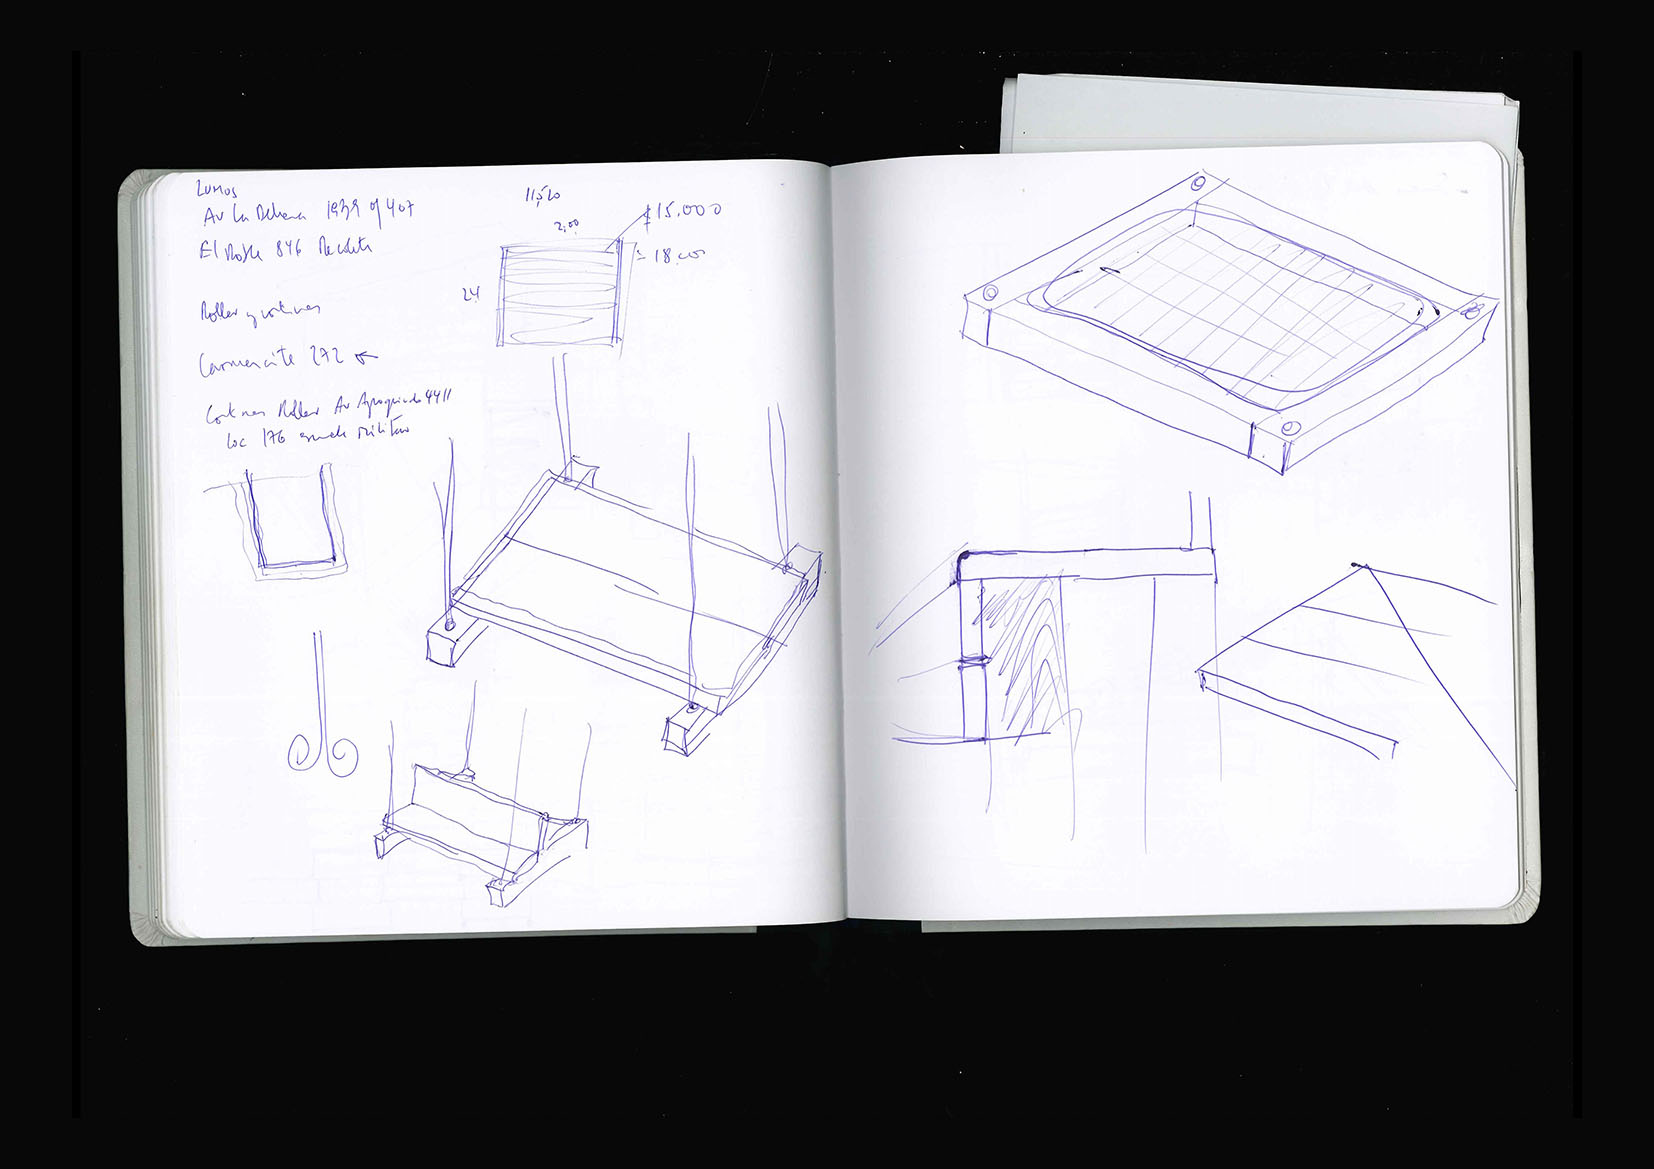 LUMOS
Av La Dehesa 1939 of 407
El Roble 846 Recoleta
Roller y cortinas
Carmencita 272
Cortinas Roller Av Apoquindo 4411
Loc 176 escuela militar
11,20
2,00
24
15.000
18.000